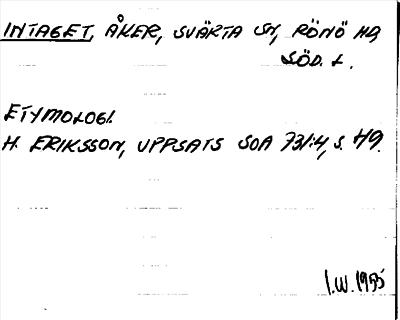 INTAGET, ÅKER, SVÄRTA SN, RÖNÖ HD,
SÖD. L.
ETYMOLOGI.
H. ERIKSSON, UPPSATS SOA 731:4, S. 49.
I.W. 1955